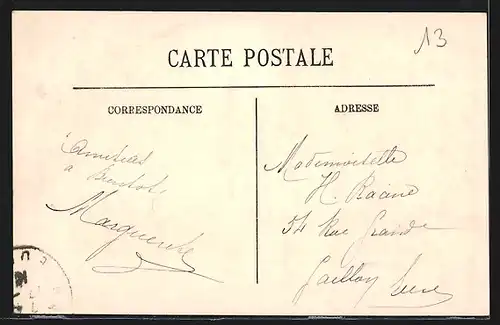 13
CARTE POSTALE
CORRESPONDANCE
ADRESSE
Amitiés
a Bientôt
Marguerite
Mademoiselle
H. Racine
54 Rue Grande
Gaillon Eure